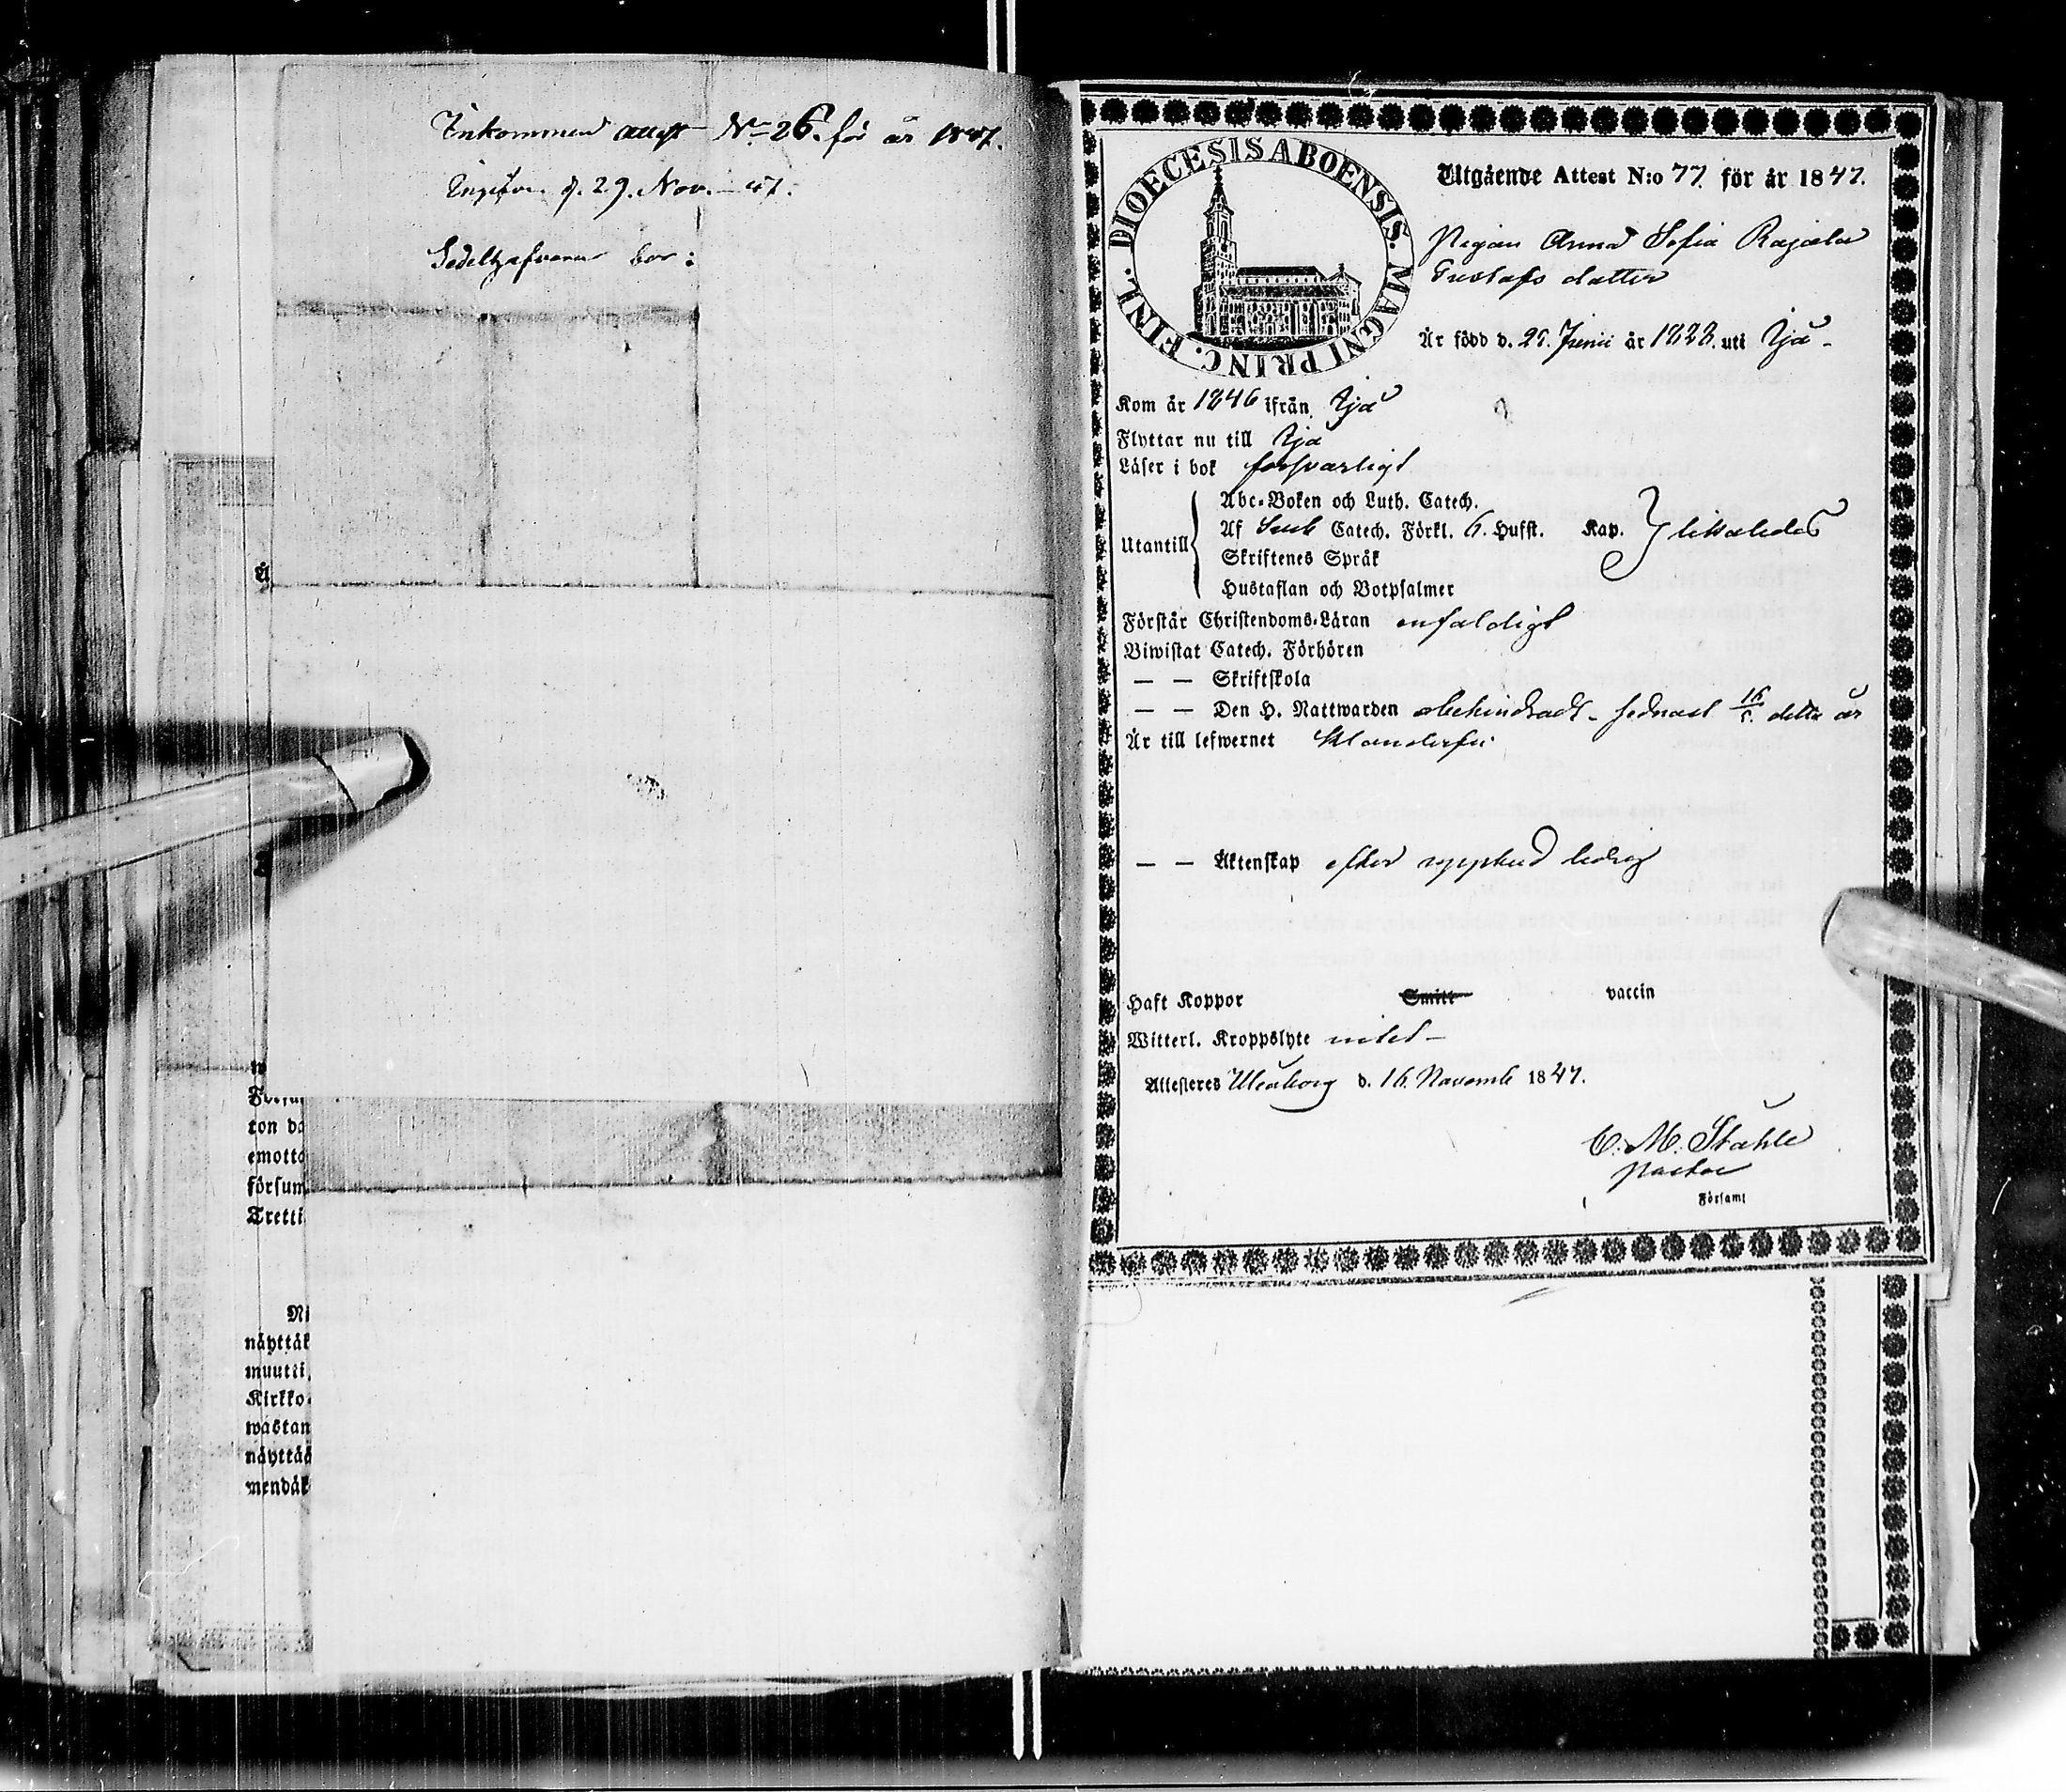 Inkommen attest No 26. för år 1847.
Ingifven d. 29. Nov. - 47.
Sedelhafvaren bor:
ton da
emotta
försum
Tretti
Ni
näyttäk
muutti
Kirkko
wastan
näyttää
mendäk
DIOECESIS ABOENSIS. MAGNI PRINC. FINL.
Utgående Attest N:o 77. för år 1847.
Pigan Anna Sofia Rajala
Gustafs dotter
Är född d. 25. Junii år 1823. uti Ijå -
Kom år 1846 ifrån Ijå
Flyttar nu till Ijå
Läser i bok försvarligt
Utantill
Abc-Boken och Luth. Catech.
Af Catech. Förkl. 6. Hufst. Kap. likaledes
Skriftenes Språk
Hustaflan och Botpsalmer
Förstår Christendoms-Läran enfaldigt
Biwistat Catech. Förhören
— — Skriftskola
— — Den H. Nattwarden obehindradt - sednast 16/5. detta år
Är till lefwernet klanderfri
— — Äktenskap efter uppbud ledig
Haft Koppor Smitt vaccin
Witterl. Kroppslyte intet -
Attesteres Uleåborg d. 16. Novemb 1847.
C. M. Ståhle
pastor
Församl